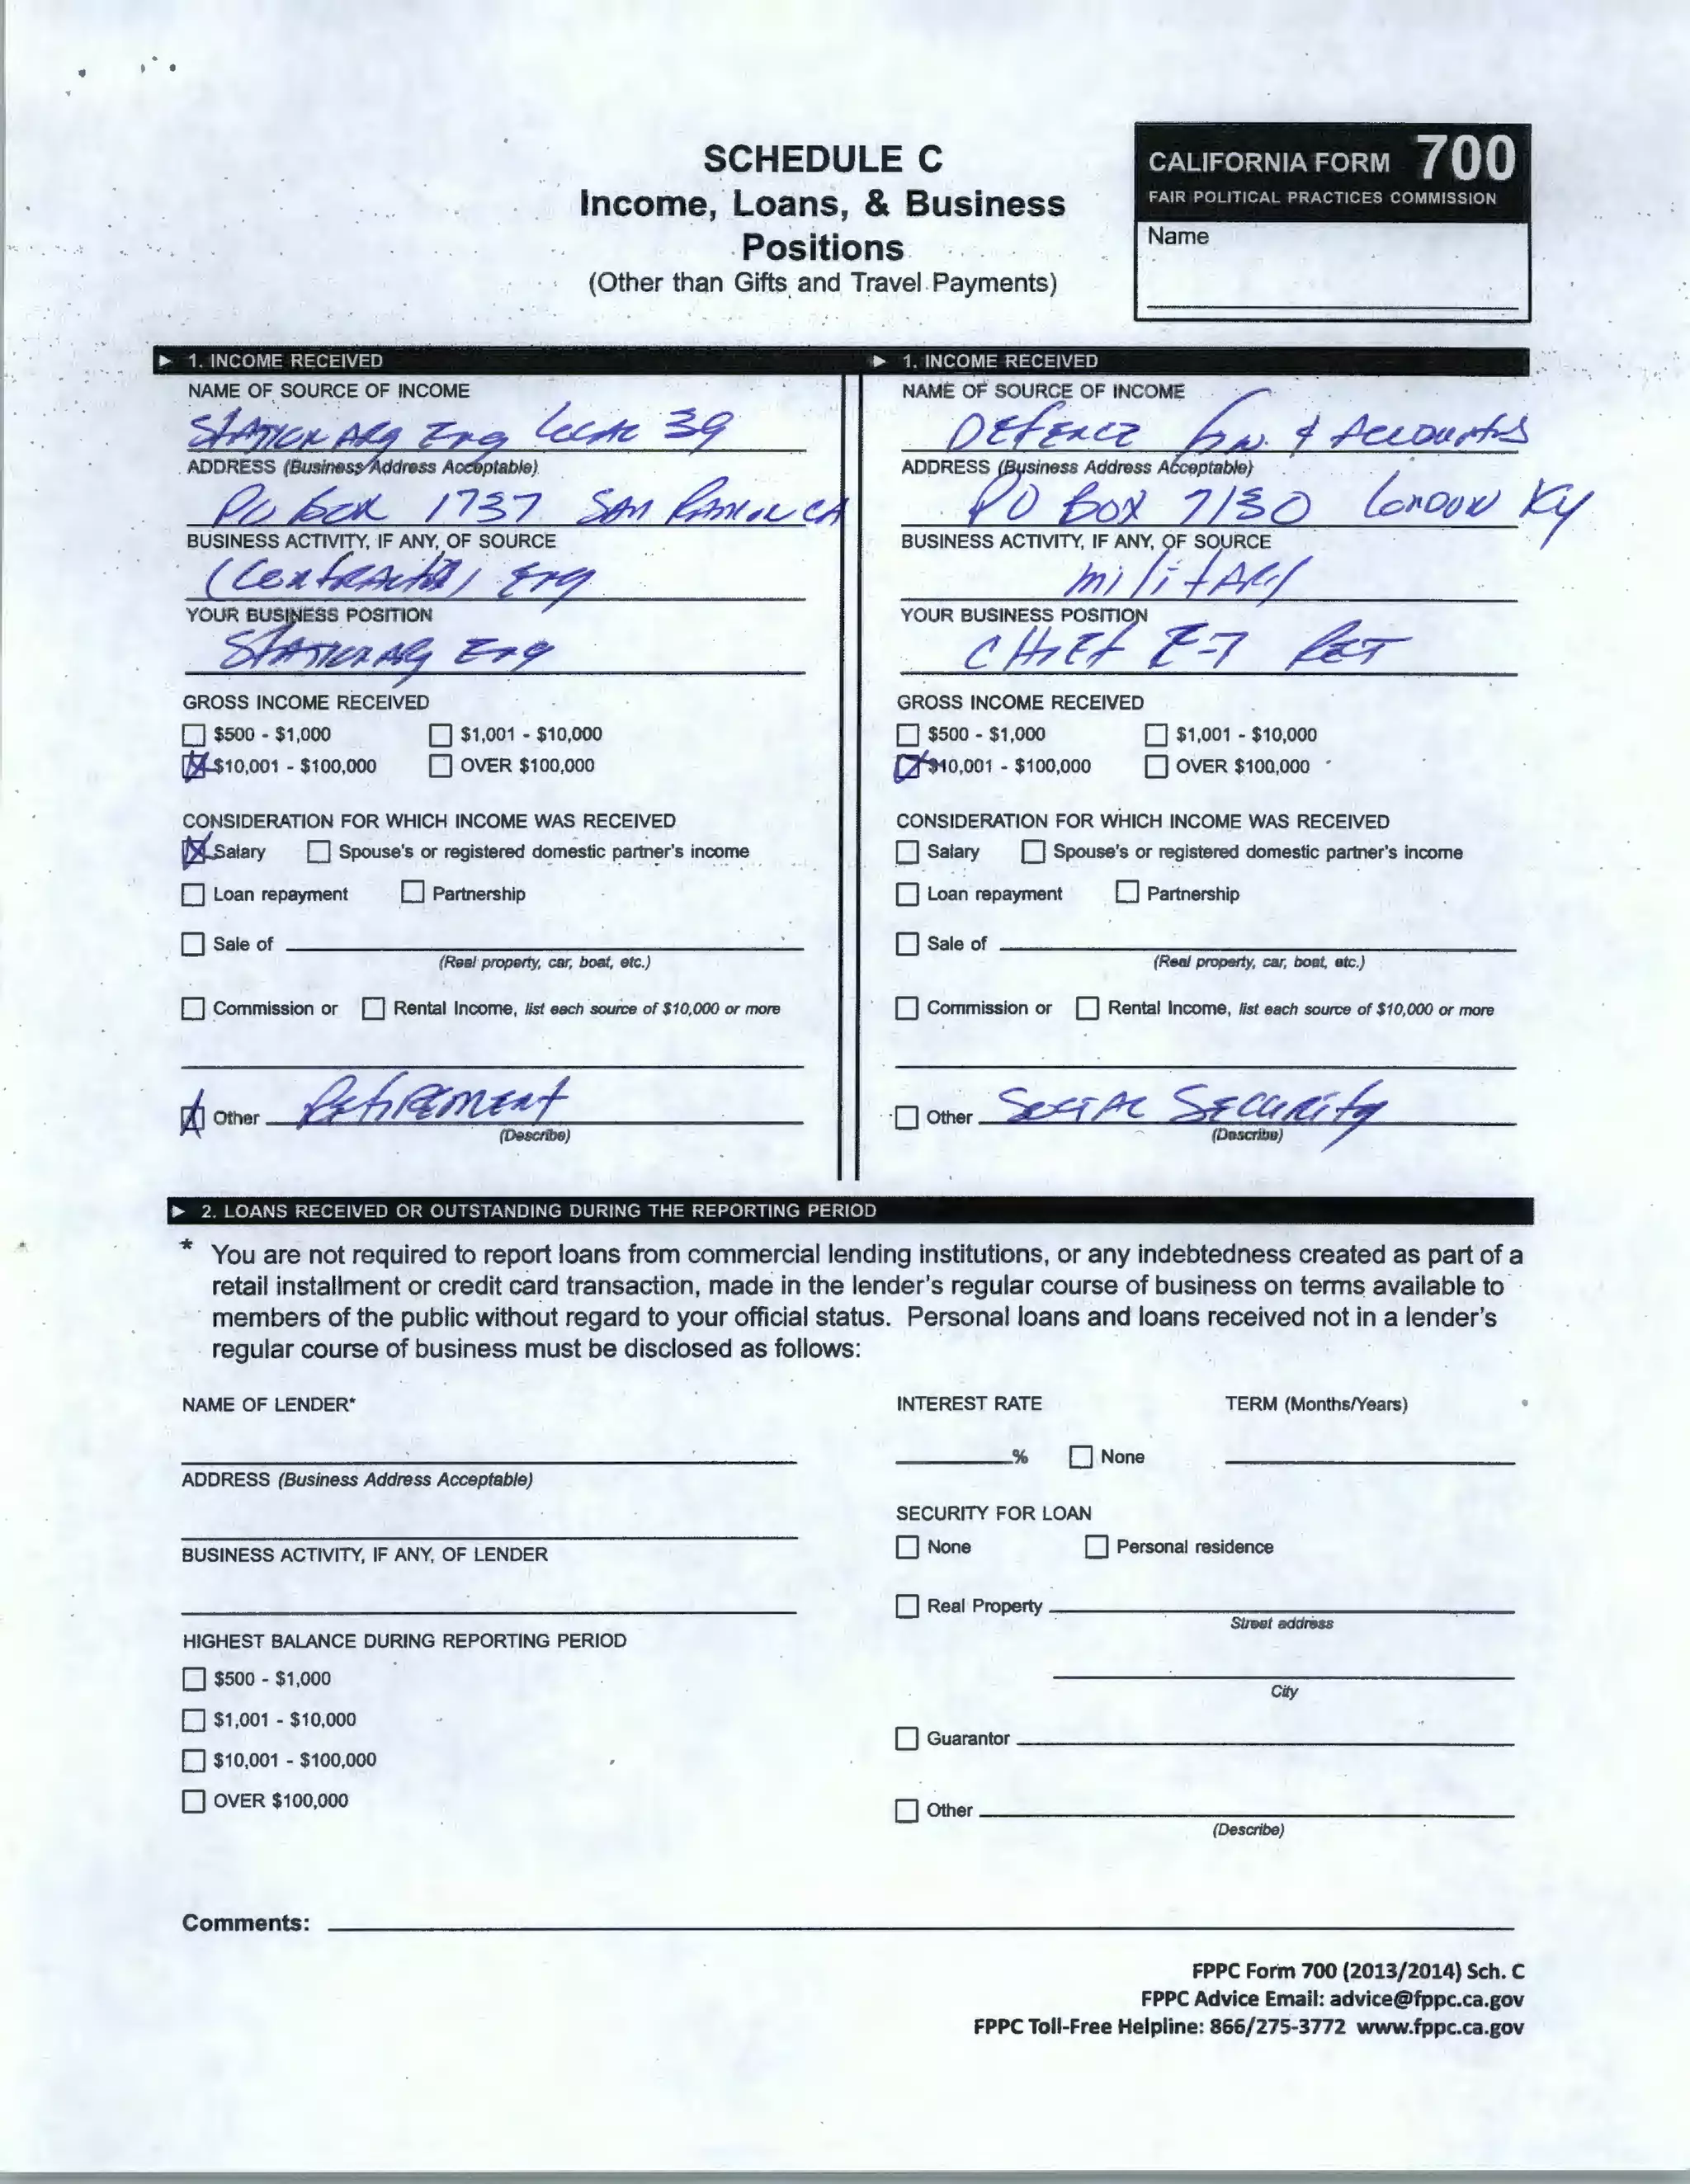 SCHEDULE C
Income, Loans, & Business
Positions
(Other than Gifts and Travel Payments)
CALIFORNIA FORM 700
FAIR POLITICAL PRACTICES COMMISSION
Name
► 1. INCOME RECEIVED
NAME OF SOURCE OF INCOME
Stationary Eng Local 39
ADDRESS (Business Address Acceptable)
PO Box 1737 SAN RAMON CA
BUSINESS ACTIVITY, IF ANY, OF SOURCE
Eng
YOUR BUSINESS POSITION
Stationary Eng
GROSS INCOME RECEIVED
☐ $500 - $1,000 ☐ $1,001 - $10,000
☒ $10,001 - $100,000 ☐ OVER $100,000
CONSIDERATION FOR WHICH INCOME WAS RECEIVED
☒ Salary ☐ Spouse's or registered domestic partner's income
☐ Loan repayment ☐ Partnership
☐ Sale of
(Real property, car, boat, etc.)
☐ Commission or ☐ Rental Income, list each source of $10,000 or more
☒ Other Retirement
(Describe)
► 1. INCOME RECEIVED
NAME OF SOURCE OF INCOME
Defence & Accounts
ADDRESS (Business Address Acceptable)
PO Box 7130 London KY
BUSINESS ACTIVITY, IF ANY, OF SOURCE
military
YOUR BUSINESS POSITION
CHIEF E-7 RET
GROSS INCOME RECEIVED
☐ $500 - $1,000 ☐ $1,001 - $10,000
☒ $10,001 - $100,000 ☐ OVER $100,000
CONSIDERATION FOR WHICH INCOME WAS RECEIVED
☐ Salary ☐ Spouse's or registered domestic partner's income
☐ Loan repayment ☐ Partnership
☐ Sale of
(Real property, car, boat, etc.)
☐ Commission or ☐ Rental Income, list each source of $10,000 or more
☐ Other Social Security
(Describe)
► 2. LOANS RECEIVED OR OUTSTANDING DURING THE REPORTING PERIOD
* You are not required to report loans from commercial lending institutions, or any indebtedness created as part of a
retail installment or credit card transaction, made in the lender's regular course of business on terms available to
members of the public without regard to your official status. Personal loans and loans received not in a lender's
regular course of business must be disclosed as follows:
NAME OF LENDER*
ADDRESS (Business Address Acceptable)
BUSINESS ACTIVITY, IF ANY, OF LENDER
HIGHEST BALANCE DURING REPORTING PERIOD
☐ $500 - $1,000
☐ $1,001 - $10,000
☐ $10,001 - $100,000
☐ OVER $100,000
INTEREST RATE TERM (Months/Years)
% ☐ None
SECURITY FOR LOAN
☐ None ☐ Personal residence
☐ Real Property
Street address
City
☐ Guarantor
☐ Other
(Describe)
Comments:
FPPC Form 700 (2013/2014) Sch. C
FPPC Advice Email: advice@fppc.ca.gov
FPPC Toll-Free Helpline: 866/275-3772 www.fppc.ca.gov